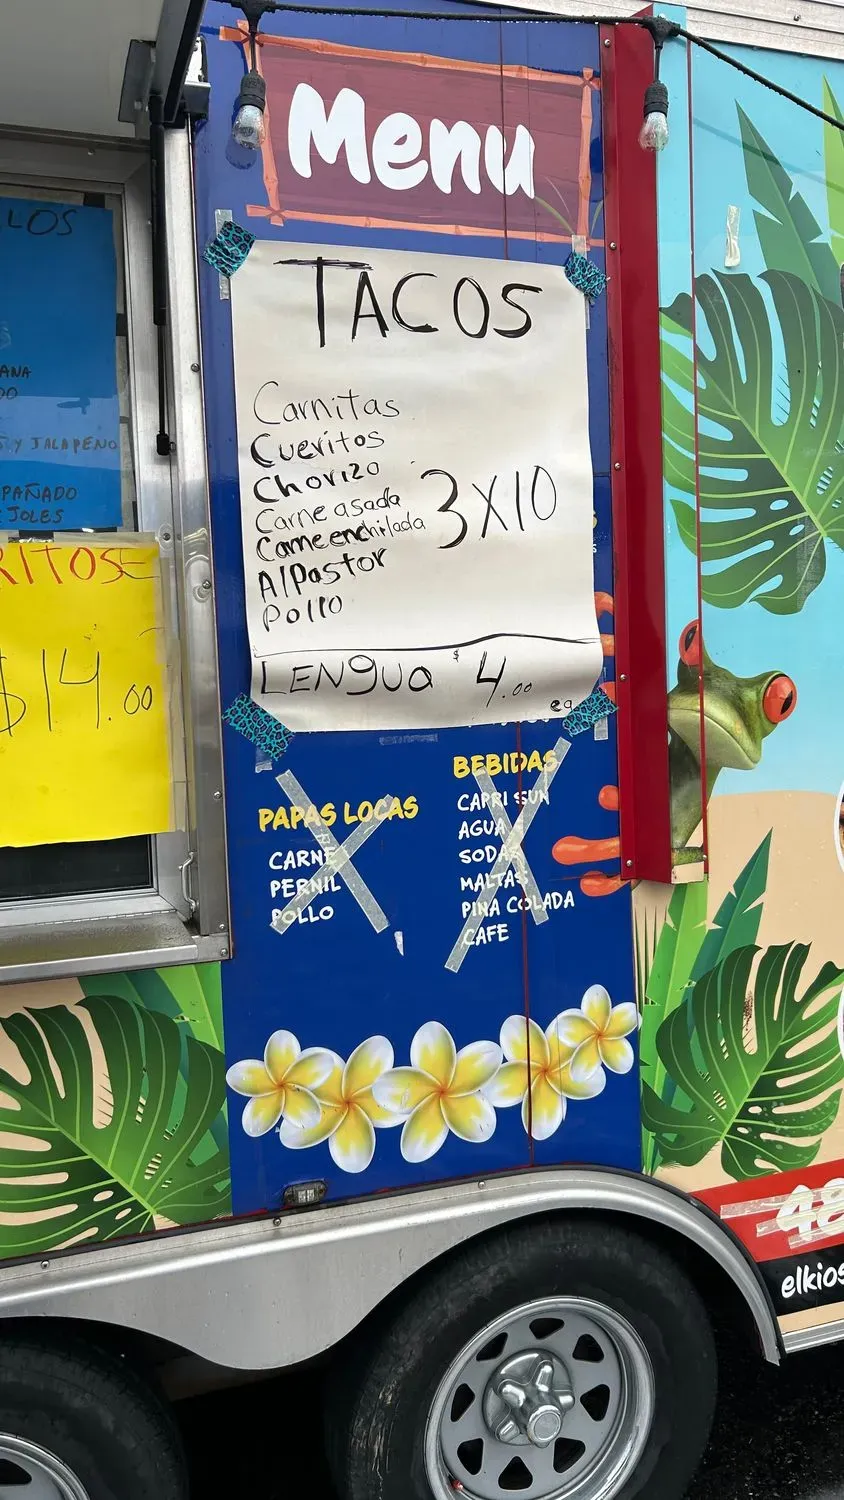 Menu
TACOS
Carnitas
Cueritos
Chorizo
Carne asada
Carne enchilada
Al Pastor
Pollo
3X10
LENgUa $4.00 ea
PAPAS LOCAS
CARNE
PERNIL
POLLO
BEBIDAS
CAPRI SUN
AGUA
SODAS
MALTAS
PINA COLADA
CAFE
LOS
ANA
DO
Y JALAPEÑO
PAÑADO
JOLES
RITOS
$14.00
48
elkios